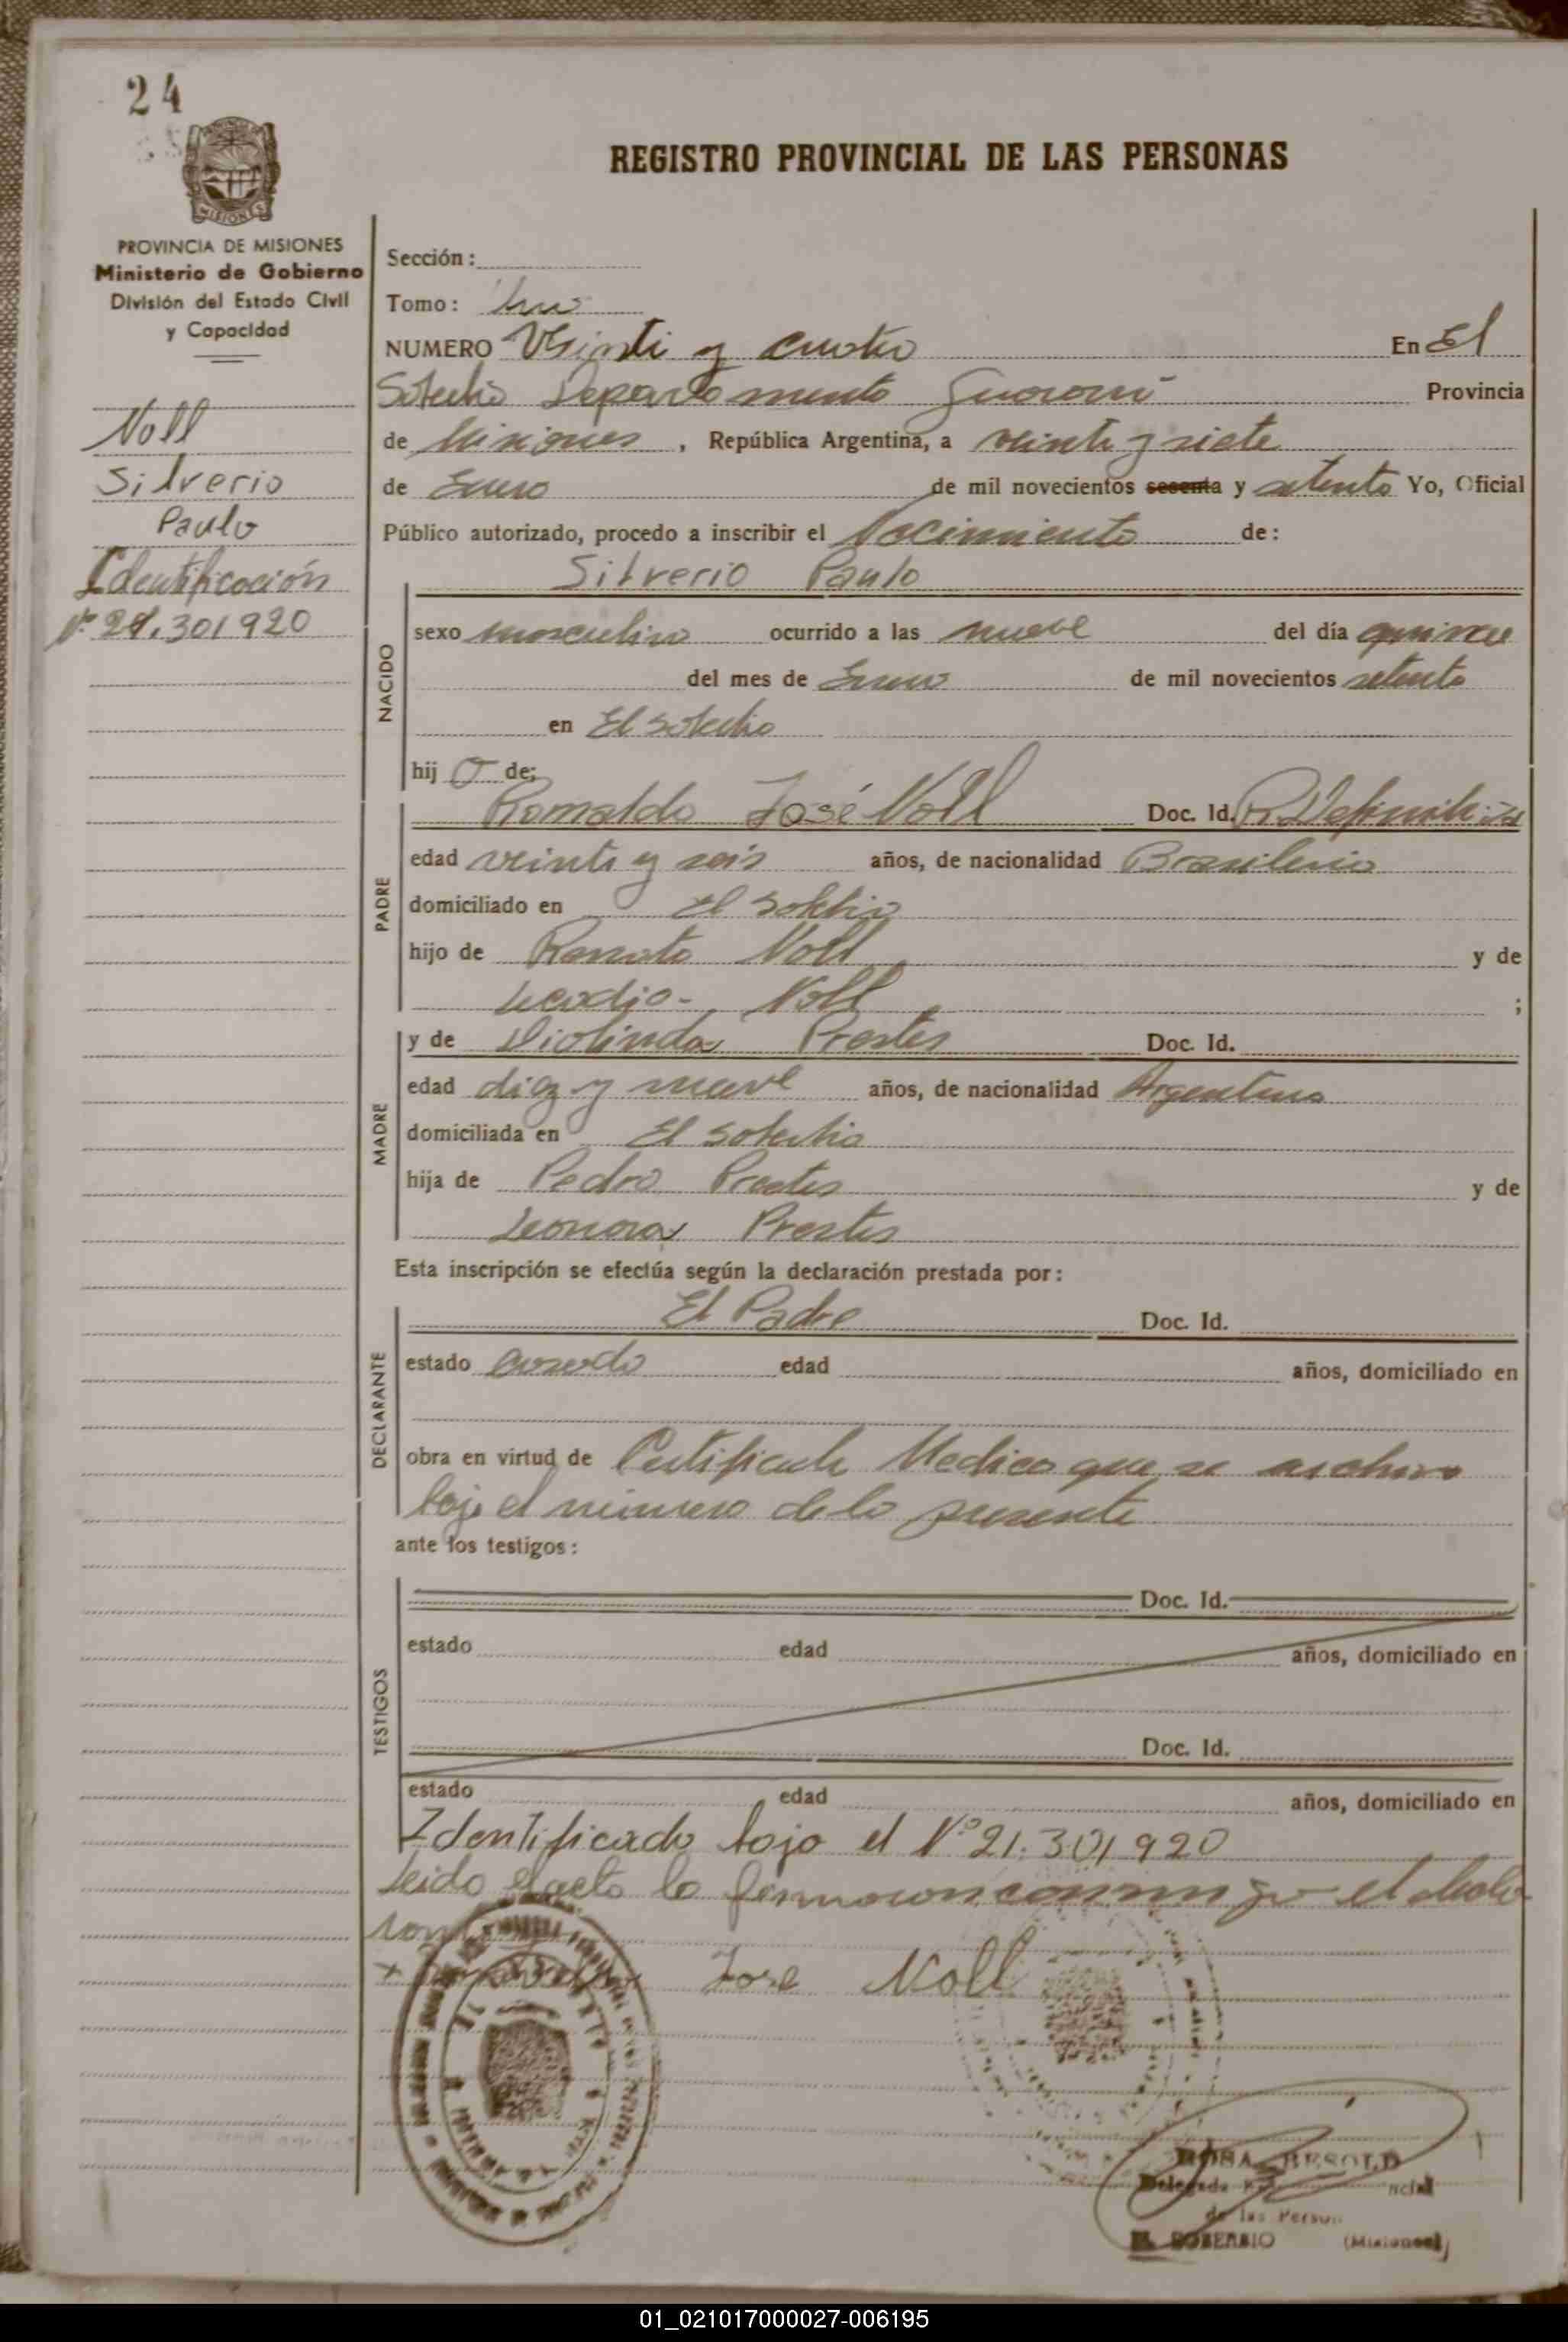 24
REGISTRO PROVINCIAL DE LAS PERSONAS
MISIONES
PROVINCIA DE MISIONES
Ministerio de Gobierno
División del Estado Civil
y Capacidad
Noll
Silverio
Paulo
Identificación
Nº 21.301920
Sección:
Tomo: Uno
NUMERO Veinti y cuatro En El
Soberbio Departamento Guarani Provincia
de Misiones, República Argentina, a veinte y siete
de Enero de mil novecientos sesenta y setenta Yo, Oficial
Público autorizado, procedo a inscribir el Nacimiento de:
Silverio Paulo
NACIDO
sexo masculino ocurrido a las nueve del día quince
del mes de Enero de mil novecientos setenta
en El Soberbio
hij o de:
PADRE
Romaldo José Noll Doc. Id. R. Definitiva
edad veinti y seis años, de nacionalidad Brasileria
domiciliado en El Soberbio
hijo de Renato Noll y de
Leodia Noll ;
MADRE
y de Diolinda Prestes Doc. Id.
edad diez y nueve años, de nacionalidad Argentina
domiciliada en El Soberbio
hija de Pedro Prestes y de
Leonora Prestes
Esta inscripción se efectúa según la declaración prestada por:
DECLARANTE
El Padre Doc. Id.
estado casado edad años, domiciliado en
obra en virtud de Certificado Medico que se archiva
bajo el número de la presente
ante los testigos:
TESTIGOS
Doc. Id.
estado edad años, domiciliado en
Doc. Id.
estado edad años, domiciliado en
Identificado bajo el Nº 21.301920
Leido el acta la firmaron conmigo el decla
rante
Jose Noll
ROSA BESOLD
Delegada
de las Person
EL SOBERBIO (Misiones)
01_021017000027-006195